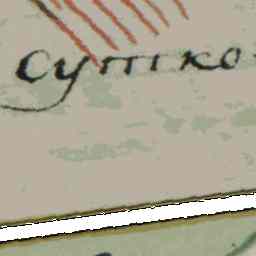 сутко